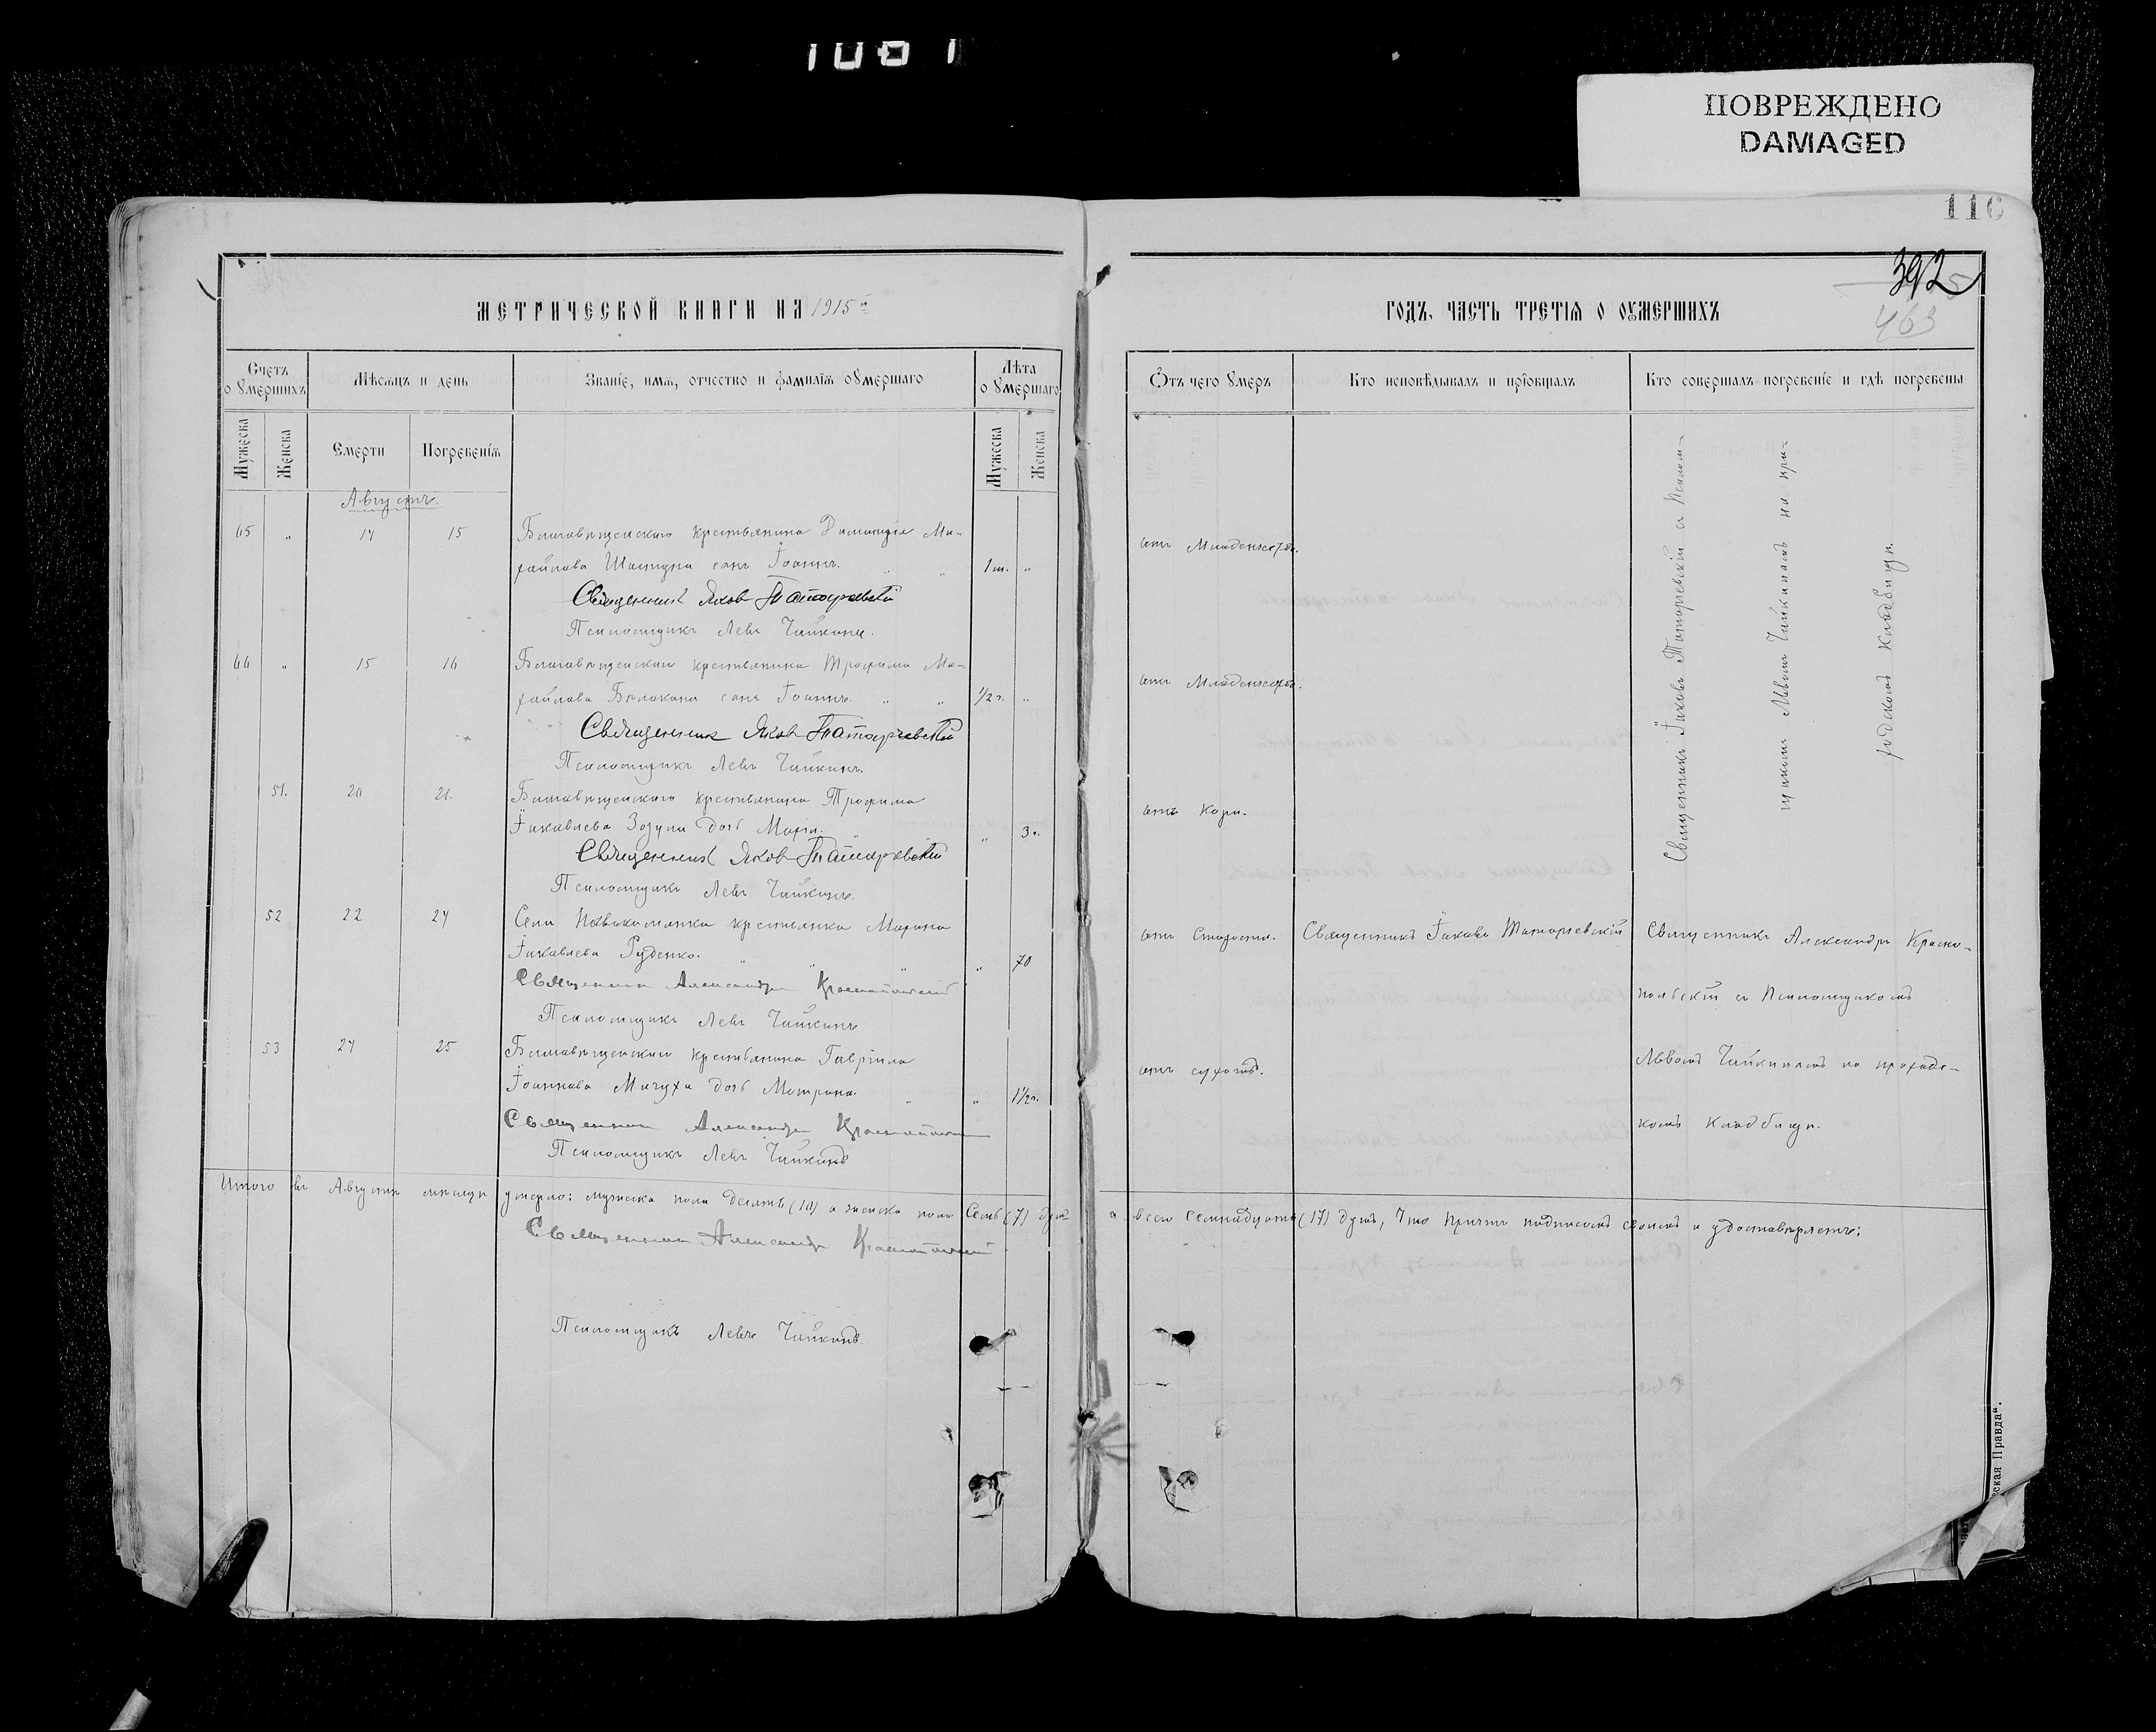 1081
ПОВРЕЖДЕНО
DAMAGED
116
392
463
МЕТРИЧЕСКОЙ КНИГИ НА 1915 г.
ГОДЪ, ЧАСТЬ ТРЕТІѦ О ОУМЕРШИХЪ
Счетъ о умершихъ
Мѣсяцъ и день
Званіе, имя, отчество и фамилія умершаго
Лѣта о умершаго
Мужеска
Женска
Смерти
Погребенія
Мужеска
Женска
Отъ чего умеръ
Кто исповѣдывалъ и пріобщалъ
Кто совершалъ погребеніе и гдѣ погребены
Августъ.
45 " 14 15 Благовѣщенскаго крестьянина Ми-
хайлова сынъ Іоаннъ. " " 1 м. "
отъ Младенчества.
Священникъ Яковъ Татаревскій
Псаломщикъ Левъ Чайкинъ.
46 " 15 16 Благовѣщенскаго крестьянина Трофима Ми-
хайлова сынъ Іоаннъ. " " 1/2 г. "
отъ Младенчества.
Священникъ Яковъ Татаревскій
Псаломщикъ Левъ Чайкинъ.
51. 20 21. Благовѣщенскаго крестьянина Трофима
Іаковлева Зозули дочь Марія. " 3 г.
отъ Кори.
Священникъ Яковъ Татаревскій
Псаломщикъ Левъ Чайкинъ.
Священникъ Іаковъ Татаревскій съ Псалом-
щикомъ Львомъ Чайкинымъ на при-
ходскомъ кладбищѣ.
52 22 24 Села крестьянка
Іаковлева Руденко. " " " " 70
отъ Старости.
Священникъ Іаковъ Татаревскій
Священникъ Александръ Красно-
польскій съ Псаломщикомъ
Львомъ Чайкинымъ на приходс-
комъ кладбищѣ.
Священникъ Александръ Краснопольскій
Псаломщикъ Левъ Чайкинъ
53 24 25 Благовѣщенскаго крестьянина Гавріила
Іоаннова дочь Матрона. " " 1 1/2 г.
Священникъ Александръ Краснопольскій
Псаломщикъ Левъ Чайкинъ
Итого въ Августѣ мѣсяцѣ умерло: мужска пола десять (10) и женска пола семь (7) душъ а всего семнадцать (17) душъ, что причтъ подписомъ своимъ и удостовѣряетъ:
Священникъ Александръ Краснопольскій
Псаломщикъ Левъ Чайкинъ.
еская Правда".